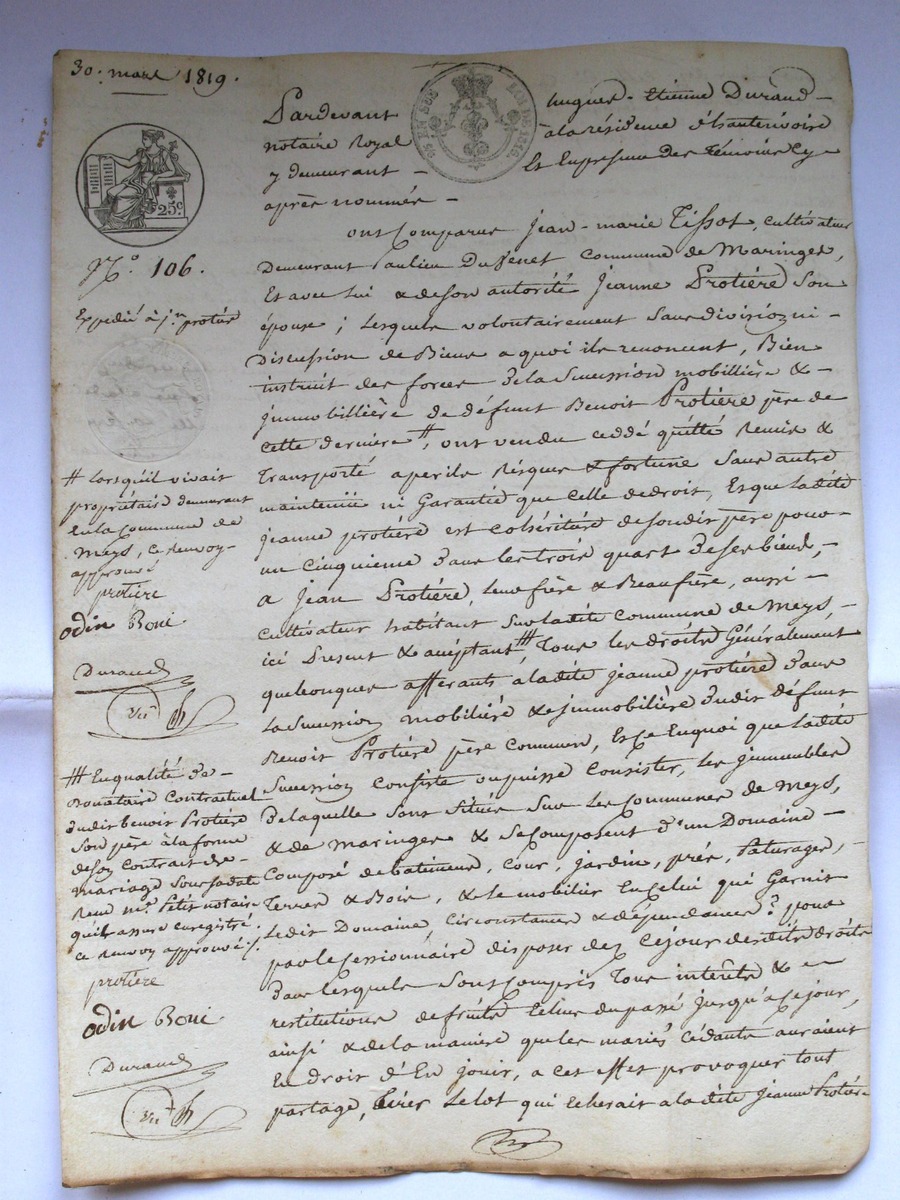 30. mars 1819.
Pardevant hugues-Etienne Durand
notaire Royal à la résidence d'hauterivoire
y demeurant Et En présence des témoins Cy
après nommés
EN SUS
LOI DE 1816.
25c
N.o 106.
Expedié à j.n protiere
ont Comparus Jean-marie Tissot, cultivateur
Demeurant au lieu Du Commune de Maringes,
Et avec lui & de son autorité Jeanne Protière Son
épouse ; lesquels volontairement Sans division ni
Discussion de Biens a quoi ils renoncent, Bien
instruit des forces de la Succession mobillière &
jmmobillière de défunt Benoit Protière père de
cette dernière #, ont vendu ceddé quitté Remis &
Transporté a perils Risques & fortune Sans autre
maintenüe ni Garantie que celle de droit, Et que ladite
jeanne protière est cohéritière de Son dit père pour
un cinquième dans les trois quart de Ses biens,
a Jean Protière, leur frère & Beaufrère, aussi
cultivateur habitant Sur ladite Commune de Meys,
ici Present & acceptant ##, Tous les droits Généralement
quelconques afferants à ladite jeanne protière dans
la Succession mobilière & jmmobilière dudit défunt
Benoit Protière père Commun, Et Ce En quoi que ladite
Succession Consiste ou puisse Consister, les jmmeubles
de laquelle Sont Situés Sur les Communes de Meys,
& de maringes & Se Composent d'un Domaine
Composé de batiments, Cour, Jardin, prés, Paturages,
Terres & Bois, & le mobilier En Celui qui Garnit
ledit Domaine, Circonstances & dépendances ? pour
par le Cessionnaire disposer dez Cejour desdits droits
dans lesquels Sont Compris Tous intérêts &
restitutions de fruits tel du passé jusqu'à Cejour,
ainsi & de la manière que les mariés Cédants auraient
En droit d'En jouir, a cet effet provoquer tout
partage, tirer le lot qui Echerait a ladite Jeanne Protière
# lorsqu'il vivait
propriétaire demeurant
En la Commune de
Meys, Ce Renvoy
approuvé
protière
odin Boni
Durand
## En qualité de
Donataire Contractuel
dudit Benoit Protière
Son père à la forme
de Son Contrat de
mariage Sous Sa date
Reçu m.e Petit notaire
qu'il assure enregistré.
Ce Renvoy approuvé ./.
protière
odin Boni
Durand